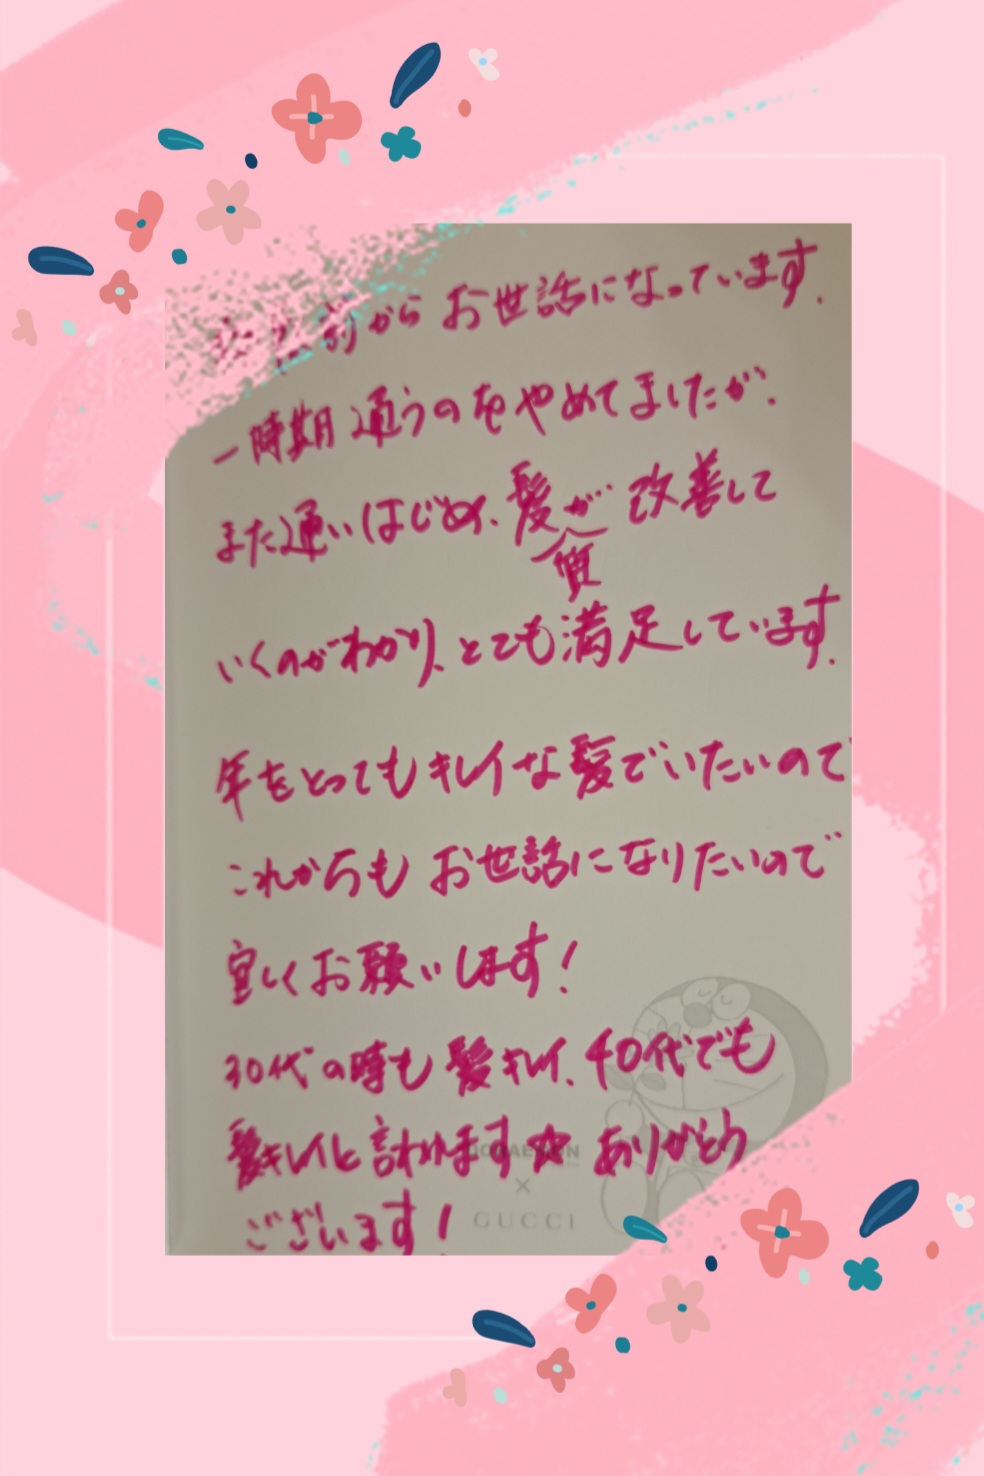 前からお世話になっています。
一時期通うのをやめてましたが、
また通いはじめ、髪質が改善して
いくのがわかり、とても満足しています。
年をとってもキレイな髪でいたいので
これからもお世話になりたいので
宜しくお願いします!
30代の時も髪キレイ、40代でも
髪キレイと言われます☆ ありがとう
ございます!
DORAEMON
×
GUCCI